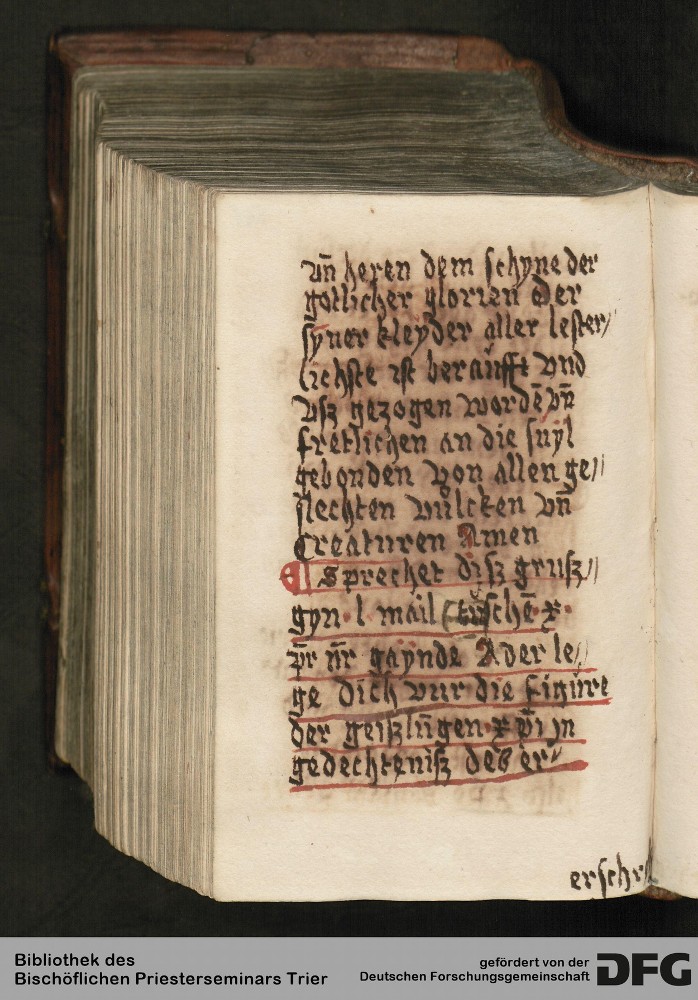 vn̄ heren dem schyne der
gotlicher glorien Der
syner kleyder aller lester⸗
lichste ist beraufft vnd
vsz gezogen wordē vn̄
fretlichen an die suyl
gebonden von allen ge⸗
slechten vulcken vn̄
Creaturen Amen
Sprechet disz grusz⸗
gyn · l mail tuschē · x ·
pr̄ nr̄ gaynde Ader le⸗
ge dich vur die figure
der geiszlūgen x pi jn
gedechtenisz des er⸗
Bibliothek des
Bischöflichen Priesterseminars Trier
gefördert von der
Deutschen Forschungsgemeinschaft
DFG